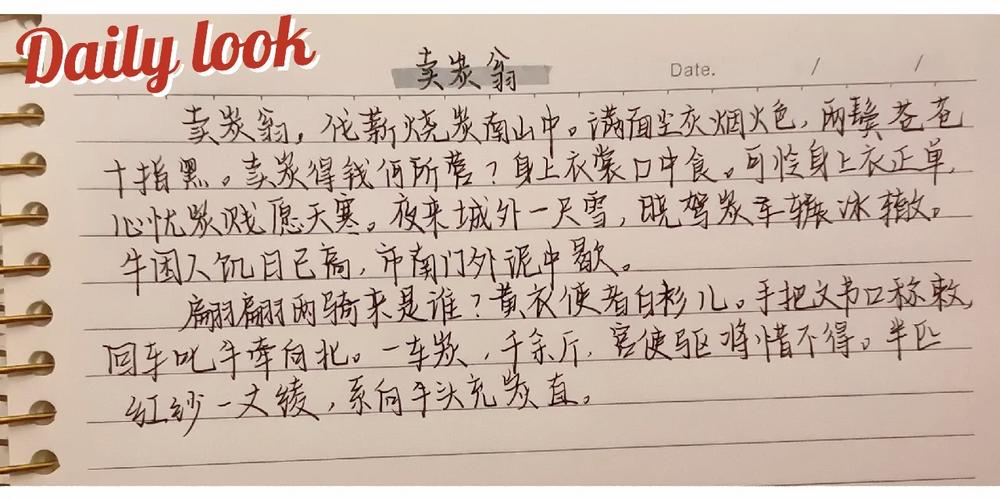 Daily look
卖炭翁
Date. / /
卖炭翁，伐薪烧炭南山中。满面尘灰烟火色，两鬓苍苍
十指黑。卖炭得钱何所营？身上衣裳口中食。可怜身上衣正单，
心忧炭贱愿天寒。夜来城外一尺雪，晓驾炭车辗冰辙。
牛困人饥日已高，市南门外泥中歇。
翩翩两骑来是谁？黄衣使者白衫儿。手把文书口称敕，
回车叱牛牵向北。一车炭，千余斤，宫使驱将惜不得。半匹
红纱一丈绫，系向牛头充炭直。